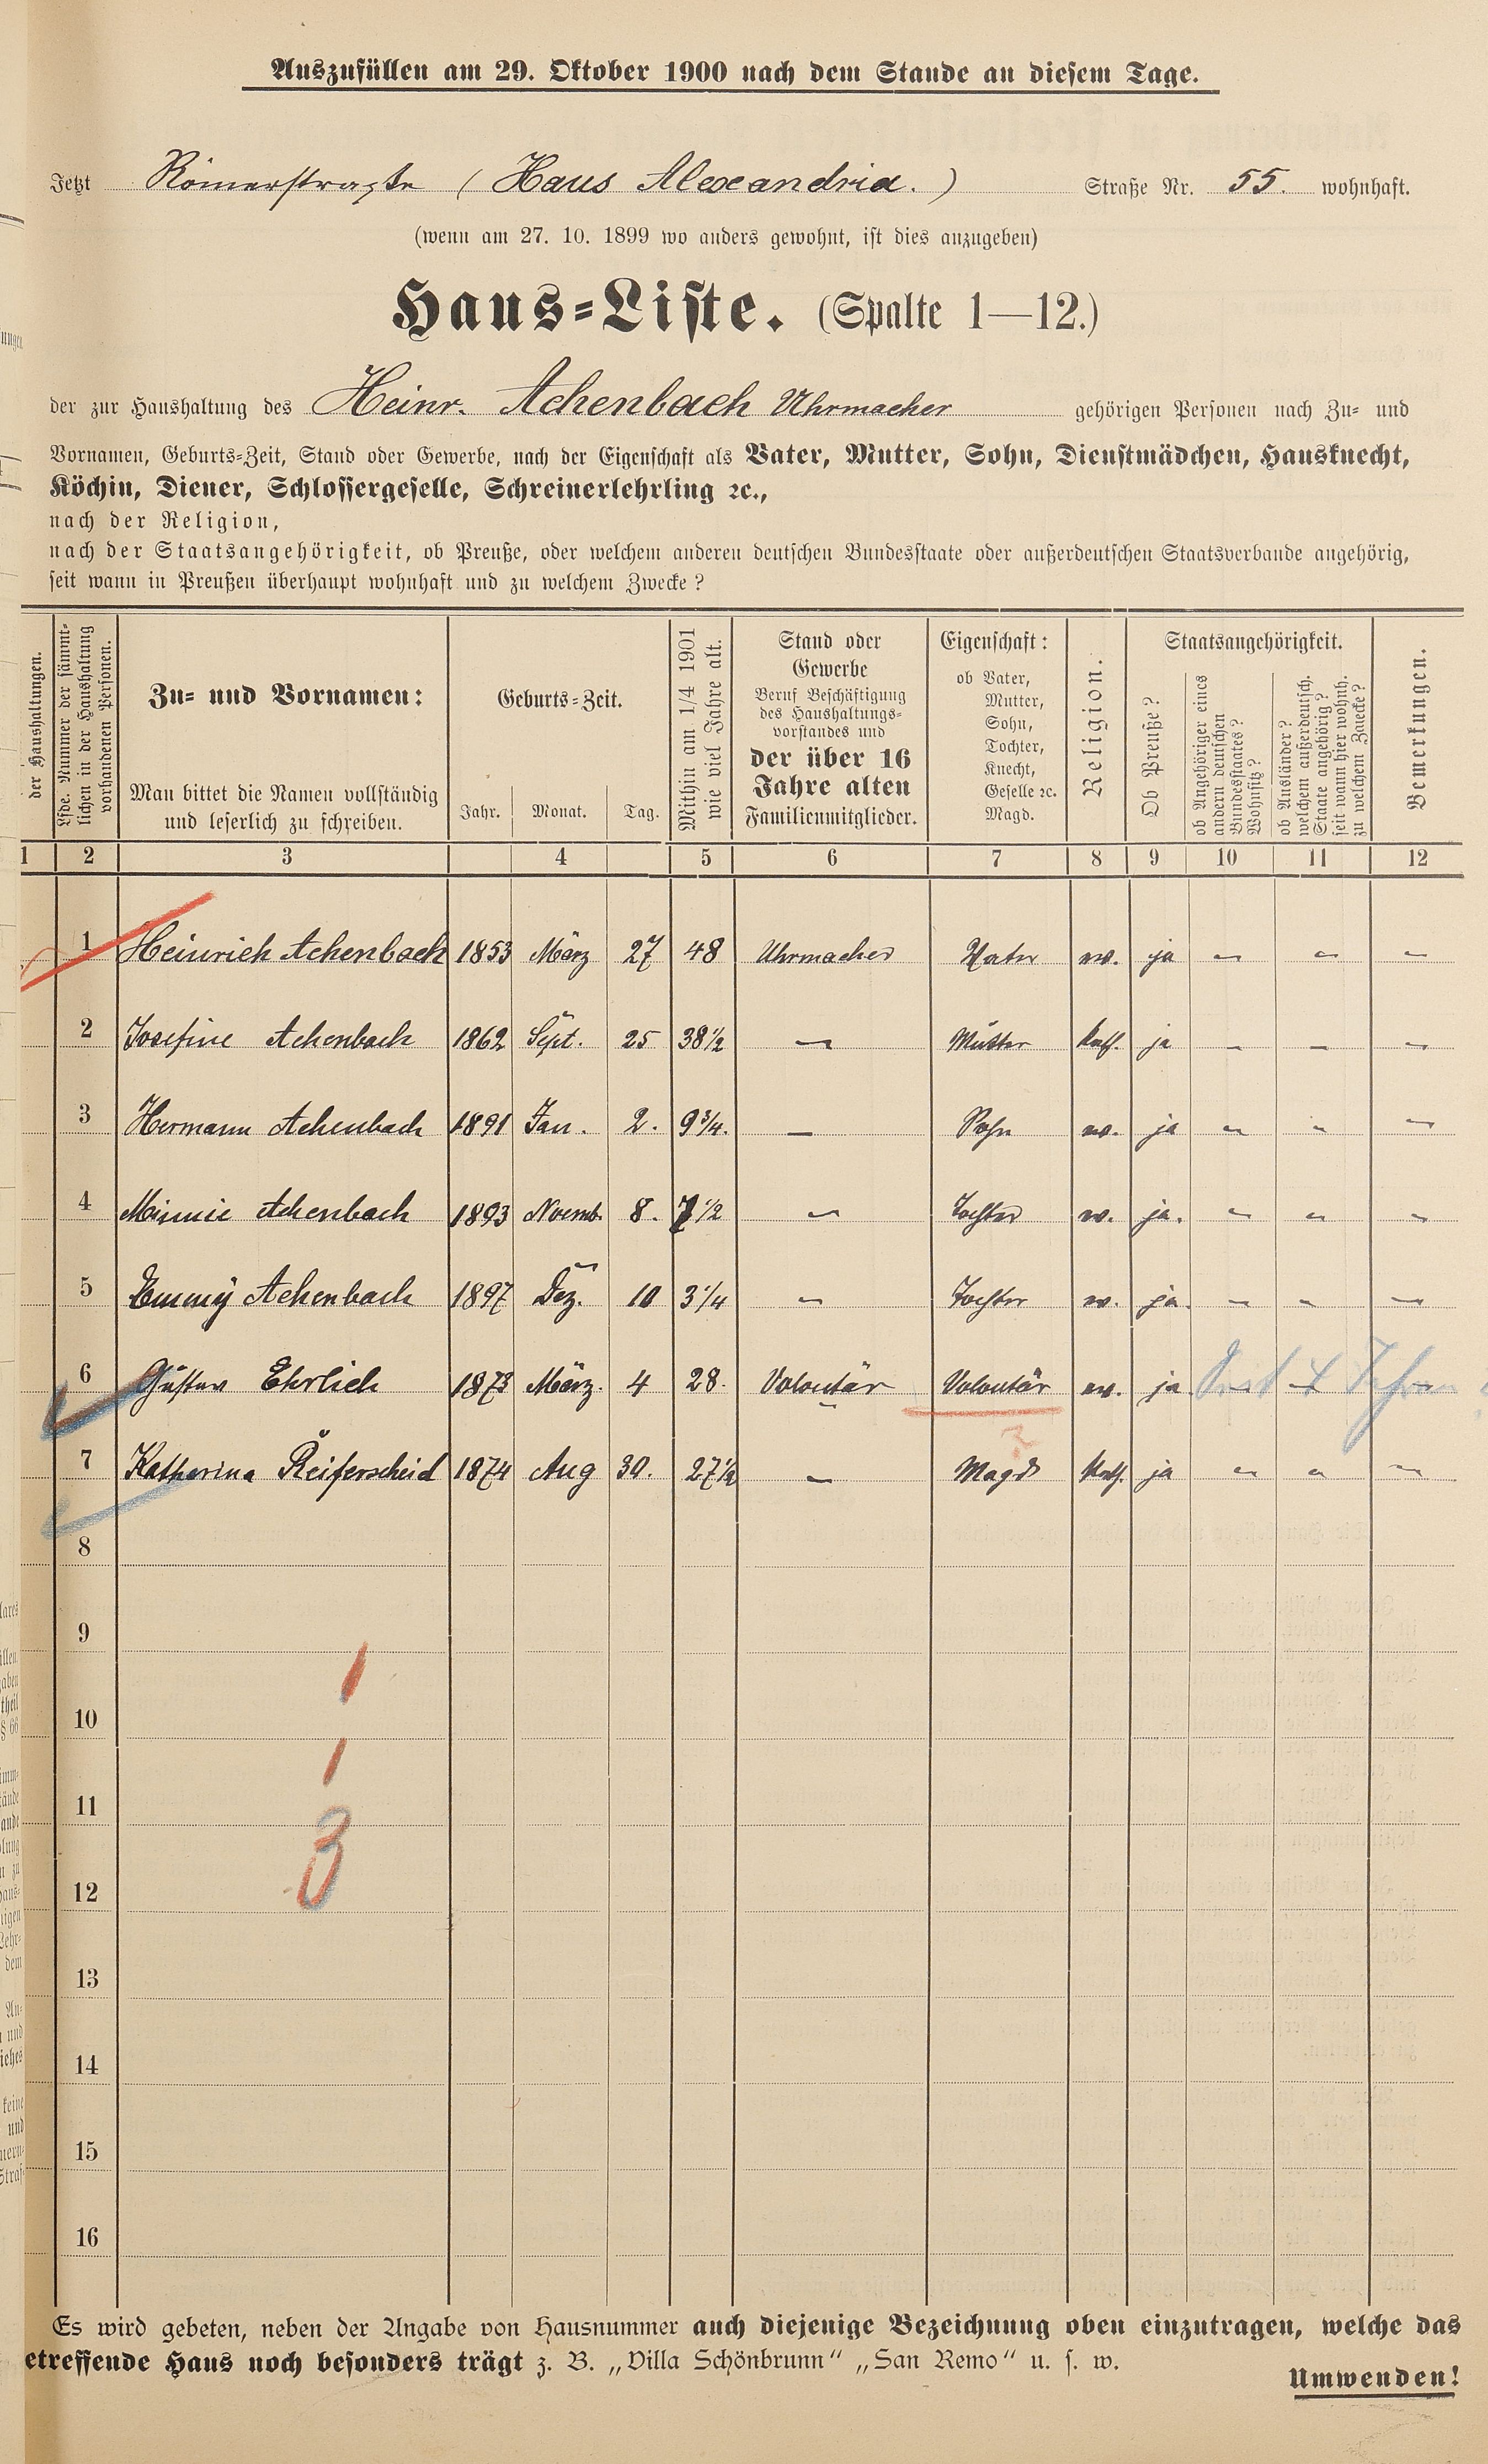 Auszufüllen am 29. Oktober 1900 nach dem Stande an diesem Tage.
Jetzt Römerstraße (Haus Alexandria.) Straße Nr. 55. wohnhaft.
(wenn am 27. 10. 1899 wo anders gewohnt, ist dies anzugeben)
Haus-Liste. (Spalte 1—12.)
der zur Haushaltung des Heinr. Achenbach Uhrmacher gehörigen Personen nach Zu- und
Vornamen, Geburts-Zeit, Stand oder Gewerbe, nach der Eigenschaft als Vater, Mutter, Sohn, Dienstmädchen, Hausknecht,
Köchin, Diener, Schlossergeselle, Schreinerlehrling ꝛc.,
nach der Religion,
nach der Staatsangehörigkeit, ob Preuße, oder welchem anderen deutschen Bundesstaate oder außerdeutschen Staatsverbande angehörig,
seit wann in Preußen überhaupt wohnhaft und zu welchem Zwecke?
der Haushaltungen.
Lfde. Nummer der sämmt-
lichen in der Haushaltung
vorhandenen Personen.
Zu- und Vornamen:
Man bittet die Namen vollständig
und leserlich zu schreiben.
Geburts-Zeit.
Jahr. Monat. Tag.
Mithin am 1/4 1901
wie viel Jahre alt.
Stand oder
Gewerbe
Beruf Beschäftigung
des Haushaltungs-
vorstandes und
der über 16
Jahre alten
Familienmitglieder.
Eigenschaft:
ob Vater,
Mutter,
Sohn,
Tochter,
Knecht,
Geselle ꝛc.
Magd.
Religion.
Staatsangehörigkeit.
Ob Preuße?
ob Angehöriger eines
andern deutschen
Bundesstaates?
Wohnsitz?
ob Ausländer?
welchem außerdeutsch.
Staate angehörig?
seit wann hier wohnh.
zu welchem Zwecke?
Bemerkungen.
1 2 3 4 5 6 7 8 9 10 11 12
1 Heinrich Achenbach 1853 März 27 48 Uhrmacher Vater ev. ja – – –
2 Josefine Achenbach 1862 Sept. 25 38 1/2 – Mutter kath. ja – – –
3 Hermann Achenbach 1891 Jan. 2. 9 3/4. – Sohn ev. ja – – –
4 Minnie Achenbach 1893 Novemb. 8. 7 1/2 – Tochter ev. ja. – – –
5 Emmy Achenbach 1897 Dez. 10 3 1/4 – Tochter ev. ja. – – –
6 Gustav Ehrlich 1873 März. 4 28. Volontär Volontär ev. ja – – –
7 Katharina Reiferscheid 1874 Aug 30. 27 1/2 – Magd kath. ja – – –
8
9
10
11
12
13
14
15
16
1
1
3
Es wird gebeten, neben der Angabe von Hausnummer auch diejenige Bezeichnung oben einzutragen, welche das
etreffende Haus noch besonders trägt z. B. „Villa Schönbrunn“ „San Remo“ u. s. w.
Umwenden!